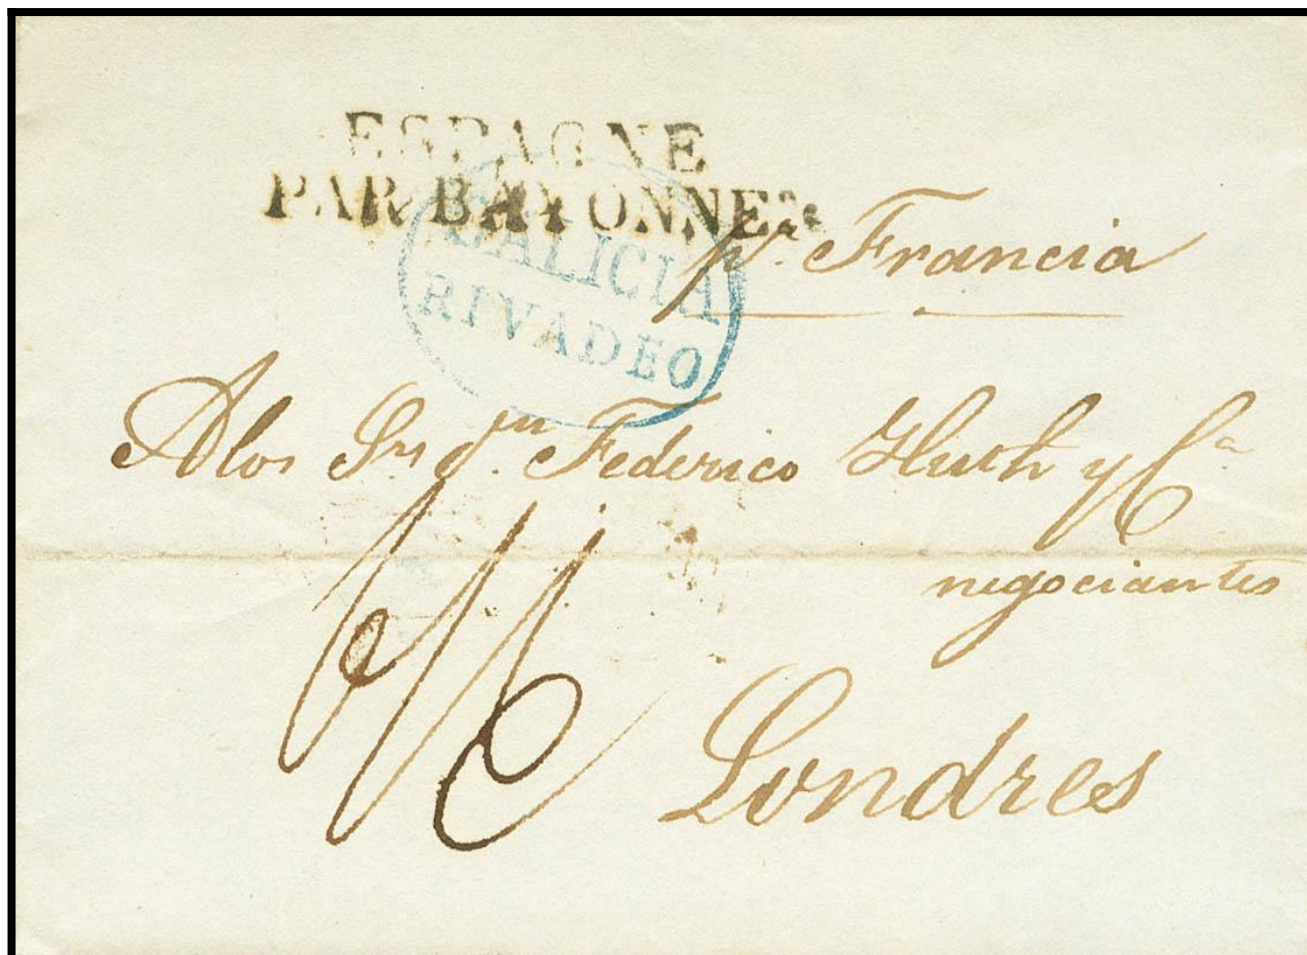 ESPAGNE
PAR BAYONNE
GALICIA
RIVADEO
pr. Francia
A los Srs Dn. Federico Huth y Ca
negociantes
Londres